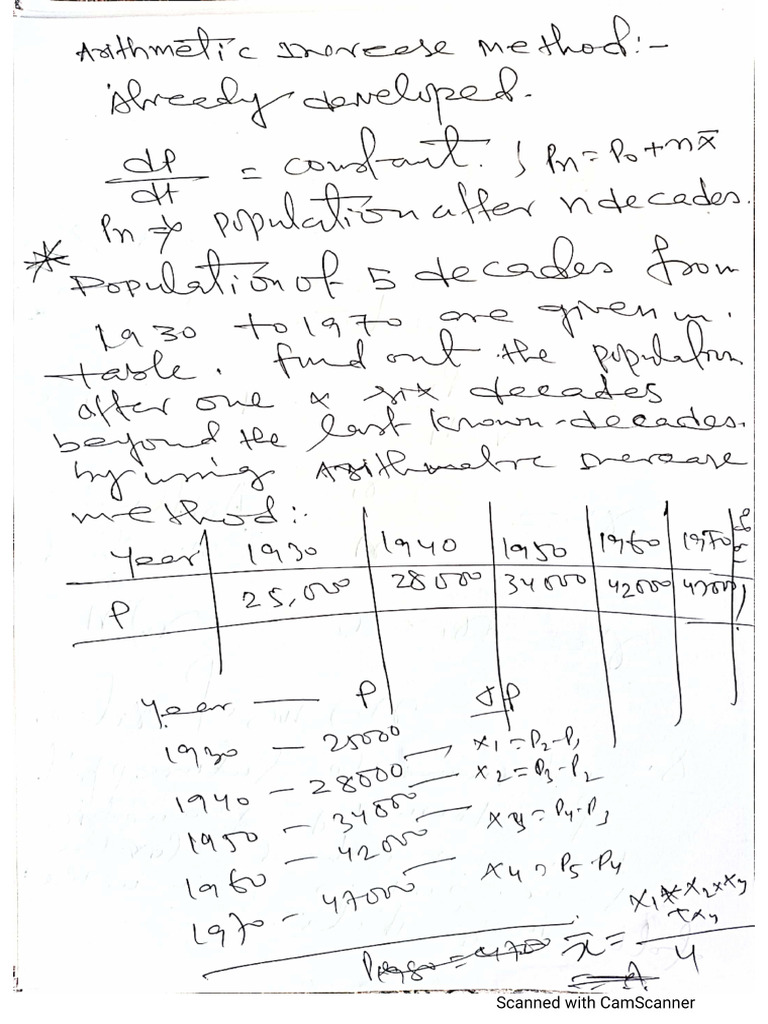 Arithmetic Increase method:-
Already developed.
dP/dt = constant. ; Pn = P0 + nx̄
Pn → population after n decades.
* Population of 5 decades from
1930 to 1970 are given in
table. Find out the population
after one & six decades
beyond the last known decades.
by using Arithmetic Increase
method:-
Year 1930 1940 1950 1960 1970
P 25,000 28000 34000 42000 47000
Year — P
1930 — 25000
1940 — 28000 — x1 = P2-P1
1950 — 34000 — x2 = P3-P2
1960 — 42000 — x3 = P4-P3
1970 — 47000 — x4 = P5-P4
x̄ = x1+x2+x3+x4 / 4
Scanned with CamScanner